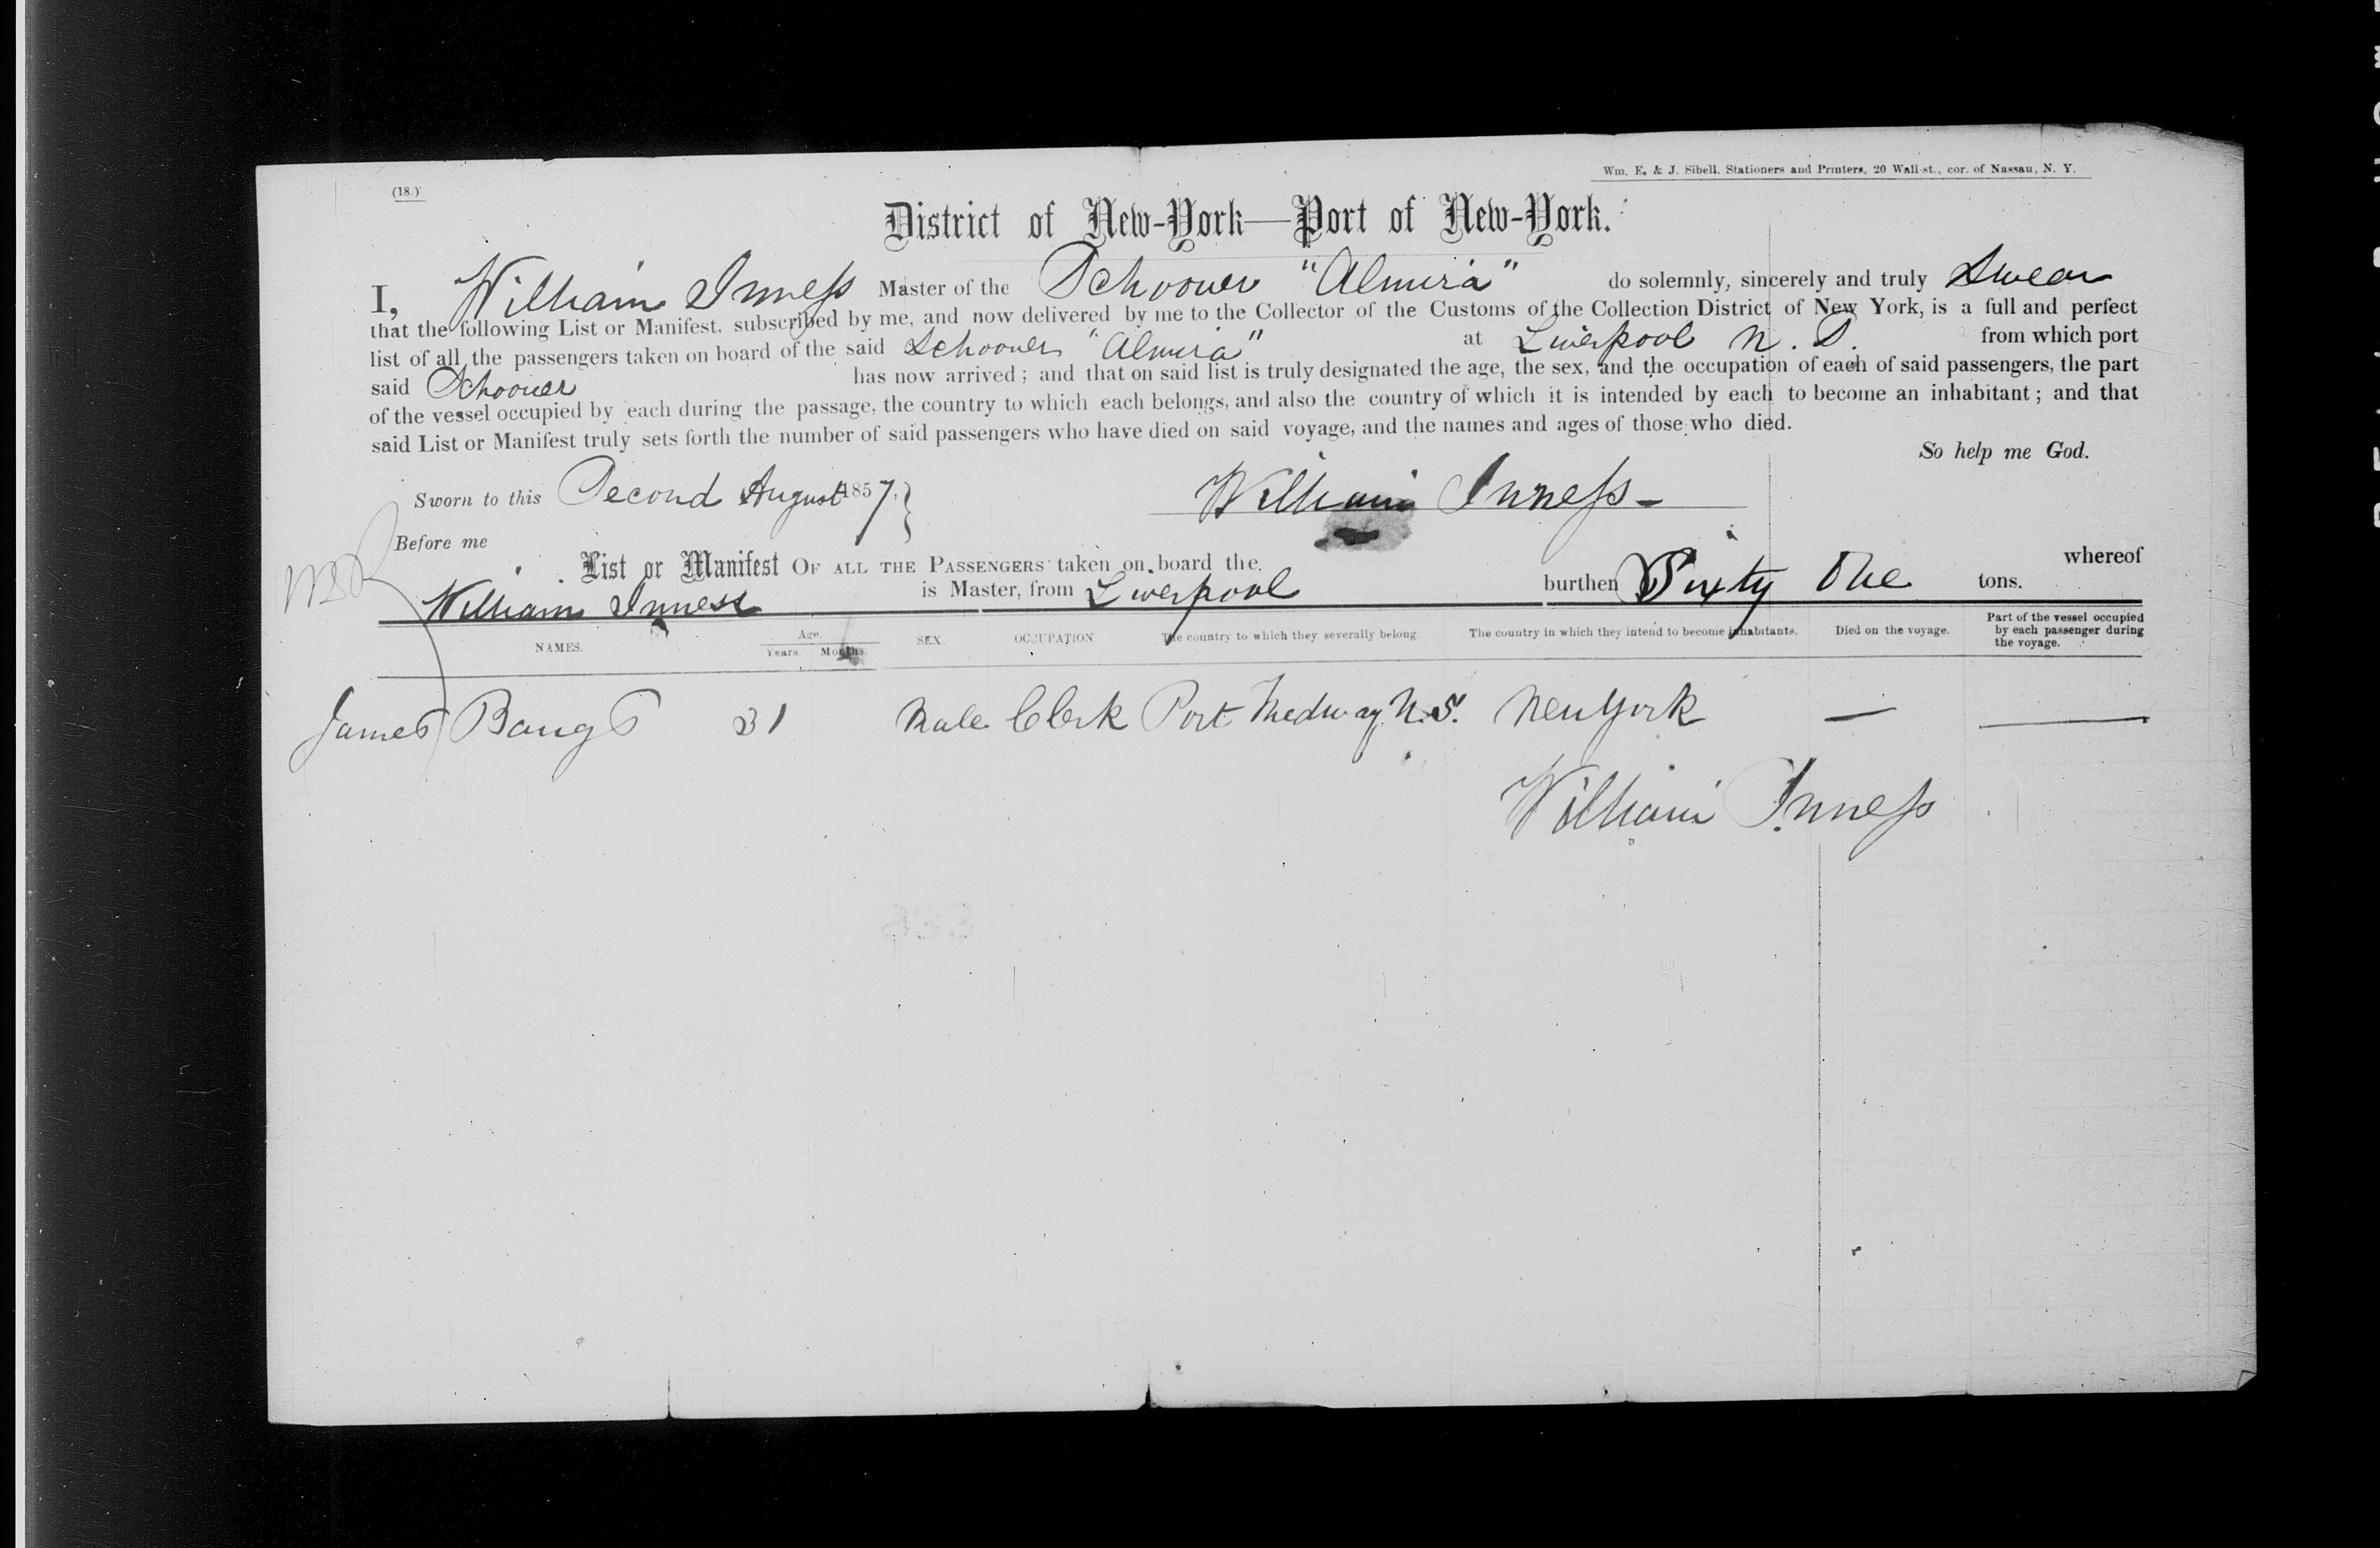 (18.)
Wm. E. & J. Sibell, Stationers and Printers, 20 Wall-st., cor. of Nassau, N. Y.
District of New-York—Port of New-York.
I, William Inness Master of the Schooner "Almira" do solemnly, sincerely and truly Swear
that the following List or Manifest, subscribed by me, and now delivered by me to the Collector of the Customs of the Collection District of New York, is a full and perfect
list of all the passengers taken on board of the said Schooner "Almira" at Liverpool N. S. from which port
said Schooner has now arrived; and that on said list is truly designated the age, the sex, and the occupation of each of said passengers, the part
of the vessel occupied by each during the passage, the country to which each belongs, and also the country of which it is intended by each to become an inhabitant; and that
said List or Manifest truly sets forth the number of said passengers who have died on said voyage, and the names and ages of those who died.
So help me God.
Sworn to this Second August 1857,
William Inness
Before me
List or Manifest OF ALL THE PASSENGERS taken on board the whereof
William Inness is Master, from Liverpool burthen Sixty One tons.
NAMES. Age. Years. Months. SEX. OCCUPATION The country to which they severally belong. The country in which they intend to become inhabitants. Died on the voyage. Part of the vessel occupied by each passenger during the voyage.
James Bangs 31 Male Clerk Port Medway N.S. New York — —
William Inness